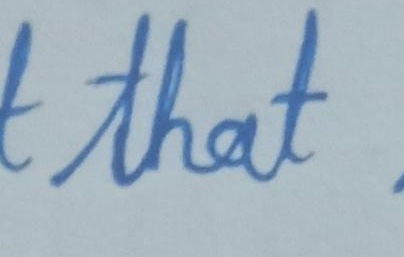 t that